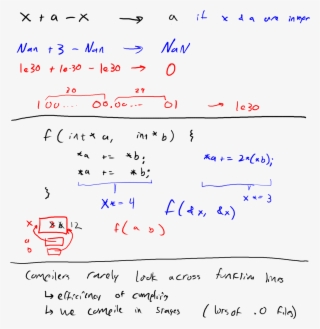 x + a - x → a if x & a are integer
Nan + 3 - Nan → NaN
1e30 + 1e-30 - 1e30 → 0
30 29
1 00.... 00.00.... 01 → 1e30
f ( int * a, int * b ) {
*a += *b;
*a += *b;
*a += 2*(*b);
}
x *= 4
x *= 3
f( &x, &x)
x
12
f( a b )
Compilers rarely look across function lines
↳ efficiency of compiling
↳ we compile in stages ( lots of .o files)